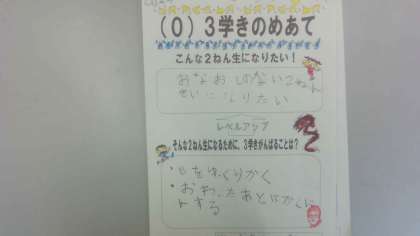 (0) 3学きのめあて
こんな2ねん生になりたい!
おなおしのない2ねん
せいになりたい
レベルアップ
そんな2ねん生になるために、3学きがんばることは?
・じをゆっくりかく
・おわったあとにかくに
んする